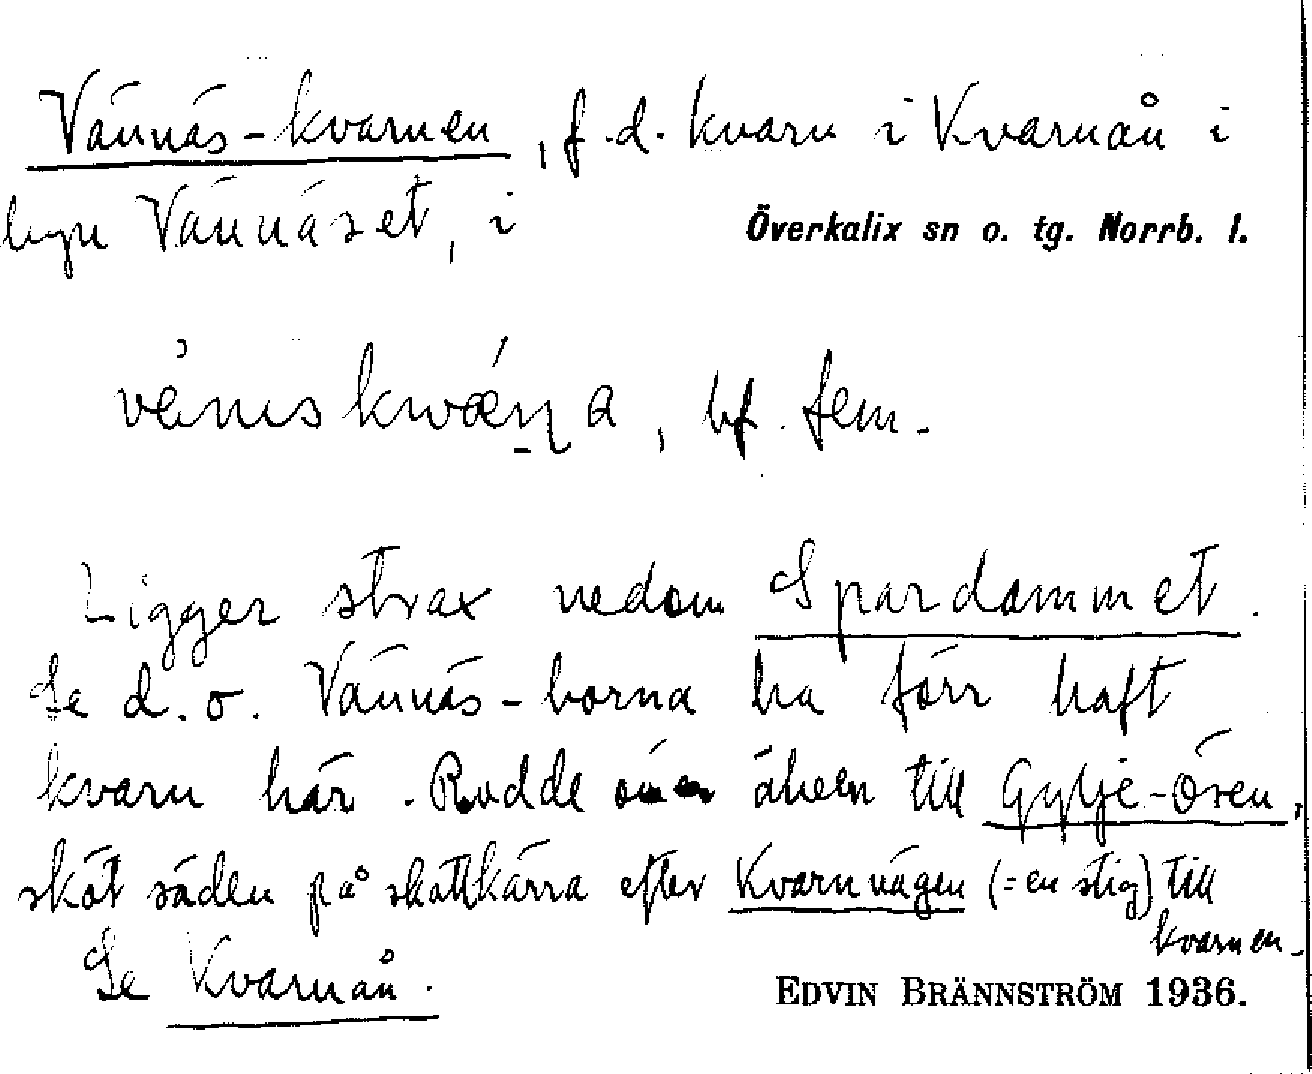 Vännäs-kvarnen, f.d. kvarn i Kvarnån i
byn Vännäset, i Överkalix sn o. tg. Norrb. l.
bf. fem.
Ligger strax nedom Spardammet.
Se d.o. Vännäs-borna ha förr haft
kvarn här. Rodde över älven till Gylje-ören,
sköt säden på skottkärra efter Kvarnvägen (=en stig) till
kvarnen.
Se Kvarnån.
EDVIN BRÄNNSTRÖM 1936.